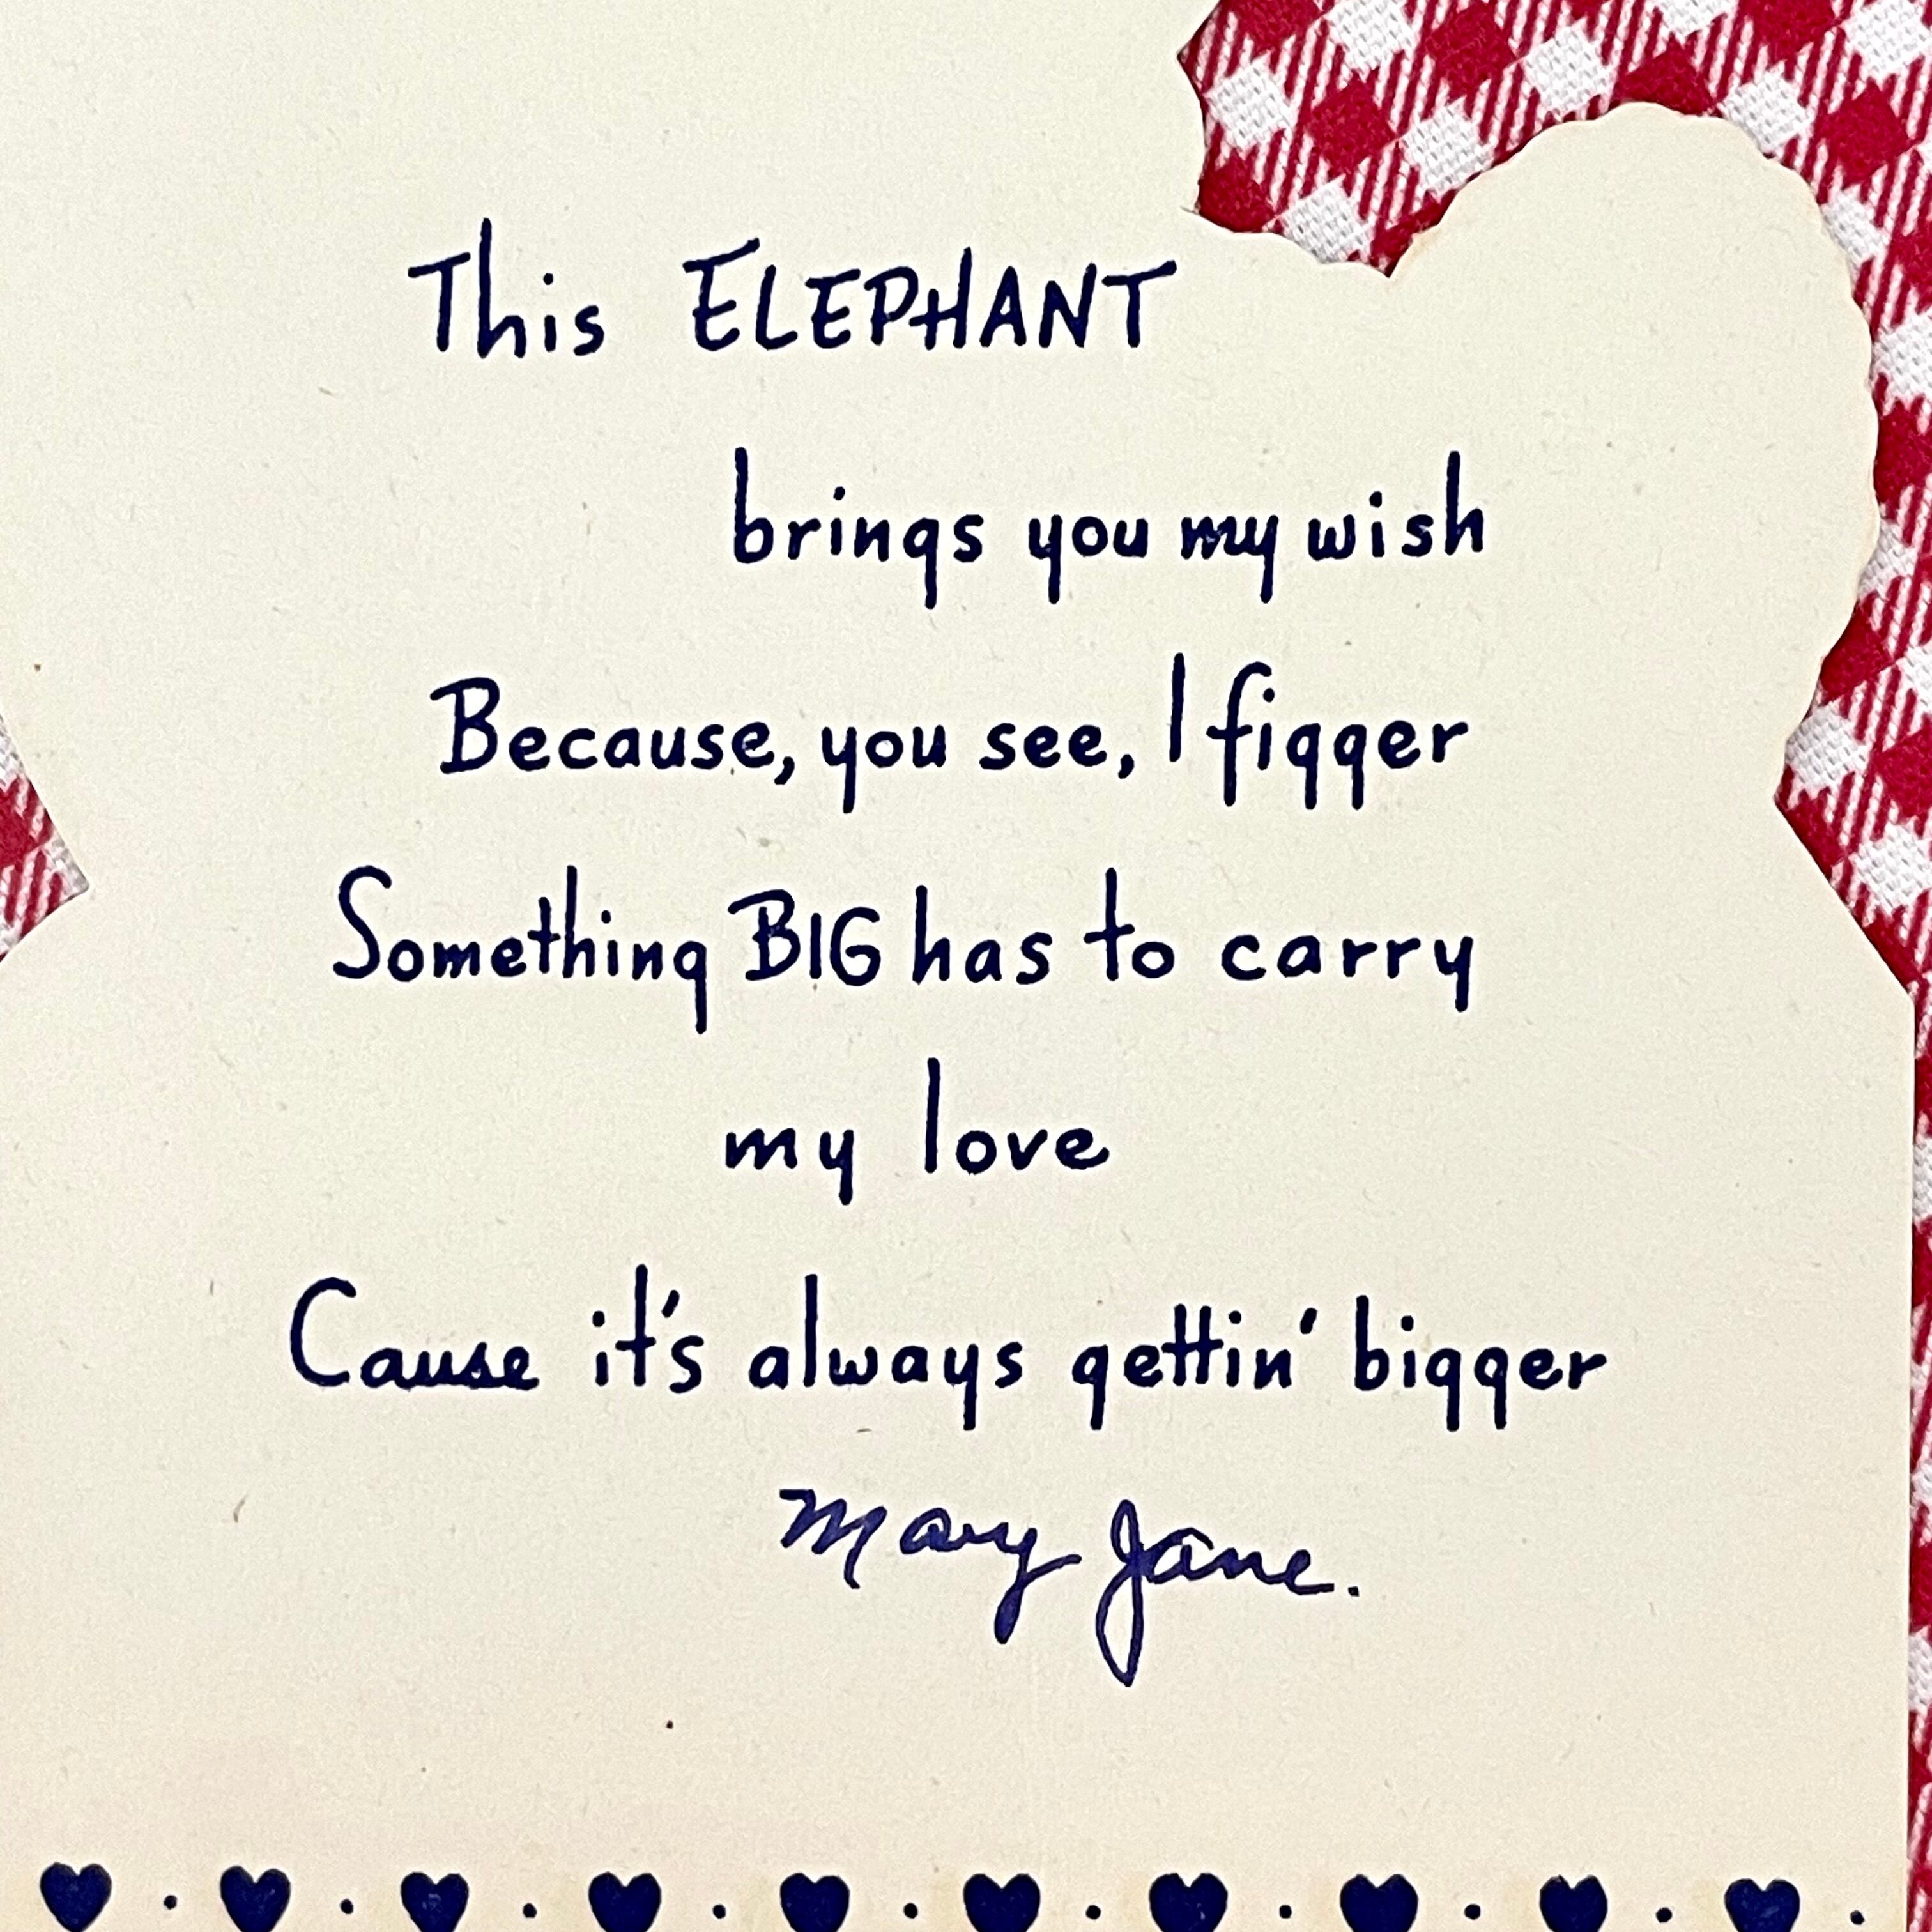 This ELEPHANT
brings you my wish
Because, you see, I figger
Something BIG has to carry
my love
Cause it's always gettin' bigger
Mary Jane.